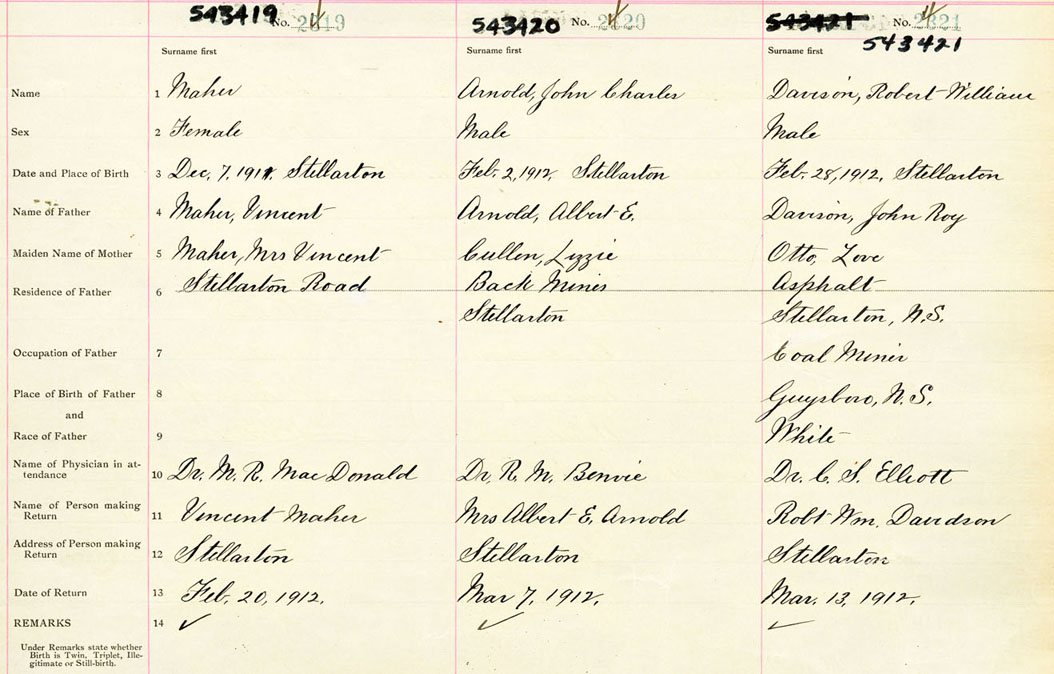 543419 No. 2319 543420 No. 2320 543421 No. 2321
543421
Surname first Surname first Surname first
Name 1 Maher Arnold, John Charles Davison, Robert William
Sex 2 Female Male Male
Date and Place of Birth 3 Dec. 7, 1911. Stellarton Feb. 2, 1912, Stellarton Feb. 28, 1912, Stellarton
Name of Father 4 Maher, Vincent Arnold, Albert E. Davison, John Roy
Maiden Name of Mother 5 Maher, Mrs Vincent Cullen, Lizzie Otto, Love
Residence of Father 6 Stellarton Road Back Mines Asphalt
Stellarton Stellarton, N.S.
Occupation of Father 7 Coal Miner
Place of Birth of Father 8 Guysboro, N.S.
and
Race of Father 9 White
Name of Physician in at-
tendance 10 Dr. M. R. MacDonald Dr. R. M. Benvie Dr. C. S. Elliott
Name of Person making
Return 11 Vincent Maher Mrs Albert E. Arnold Robt Wm. Davidson
Address of Person making
Return 12 Stellarton Stellarton Stellarton
Date of Return 13 Feb. 20, 1912. Mar 7, 1912. Mar. 13, 1912.
REMARKS 14 ✓ ✓ ✓
Under Remarks state whether
Birth is Twin, Triplet, Ille-
gitimate or Still-birth.